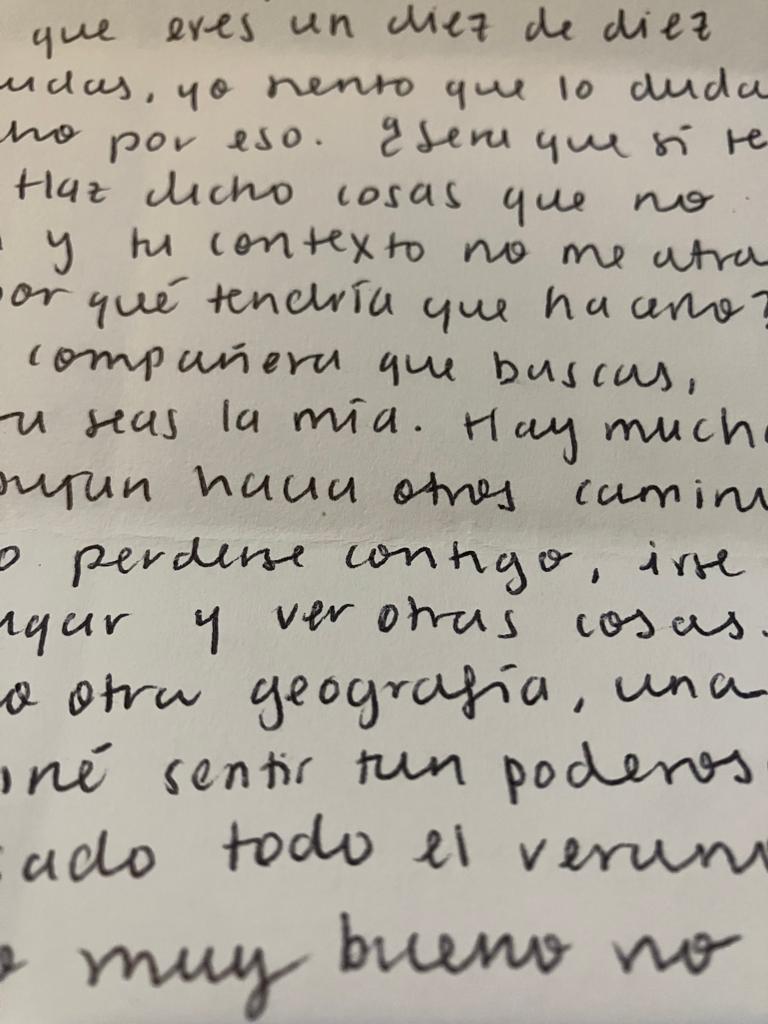 que eres un diez de diez
udas, yo siento que lo duda
cho por eso. ¿Sera que si te
Haz dicho cosas que no
y tu contexto no me atra
por qué tendría que hacerlo?
compañera que buscas,
tu seas la mía. Hay mucho
hacia otros camino
o perderse contigo, irse
ugar y ver otras cosas.
o otra geografía, una
iné sentir tan poderoso
sado todo el verano
o muy bueno no